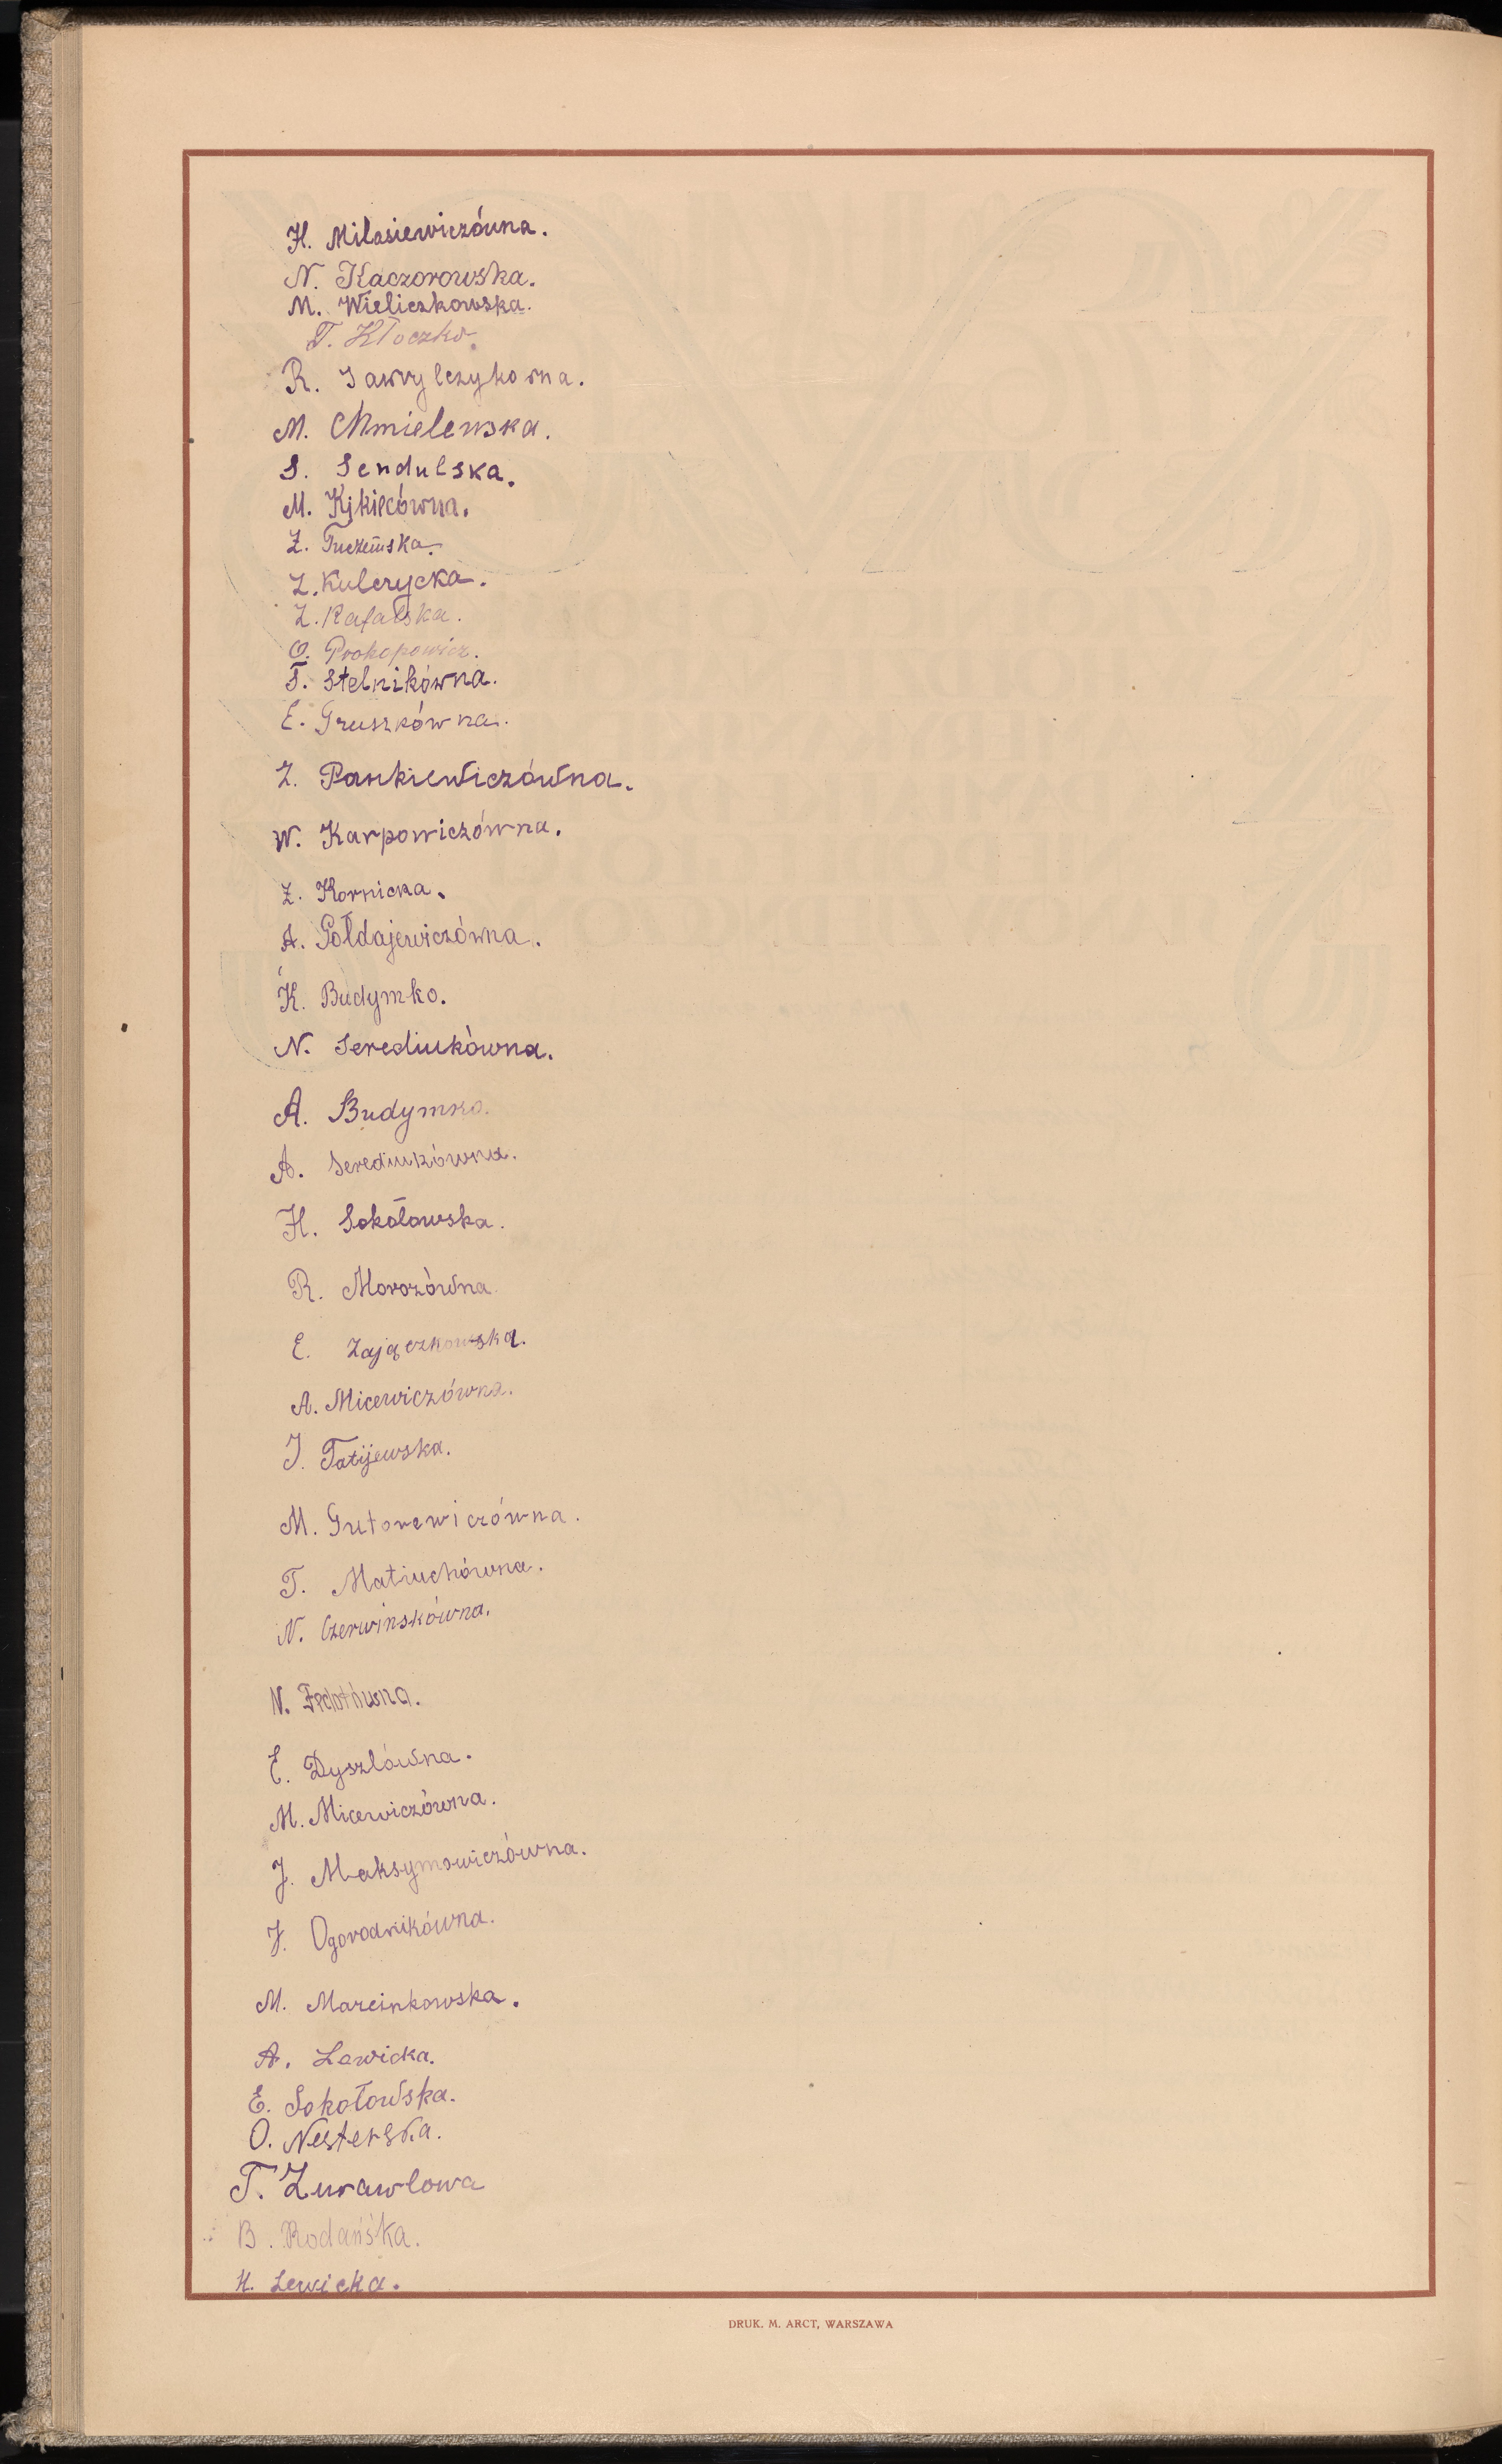 H. Milasiewiczówna.
N. Kaczorowska.
M. Wieliczkowska.
T. Kłoczko.
R. Sawrylczykowna.
M. Chmielewska.
S. Sendulska.
M. Kijkiecówna.
Z. Tuczemska.
Z. Kulerycka.
Z. Rafalska.
O. Prokopowicz.
T. Stelnikówna.
E. Gruszkówna.
Z. Pankiewiczówna.
W. Karpowiczówna.
Z. Kornicka.
A. Gołdajewiczówna.
K. Budymko.
N. Serediukówna.
A. Budymko.
A. Serediukówna.
H. Sokołowska.
R. Morozówna.
E. Zajączkowska.
A. Micewiczówna.
J. Tatijewska.
M. Gutorewiczówna.
T. Matiuchówna.
N. Czerwinskówna.
N. Fedotówna.
E. Dyszlówna.
M. Micewiczówna.
J. Maksymowiczówna.
J. Ogorodnikówna.
M. Marcinkowska.
A. Lewicka.
E. Sokołowska.
O. Nesterska.
T. Żurawlowa
B. Rodańska.
H. Lewicka.
DRUK. M. ARCT, WARSZAWA